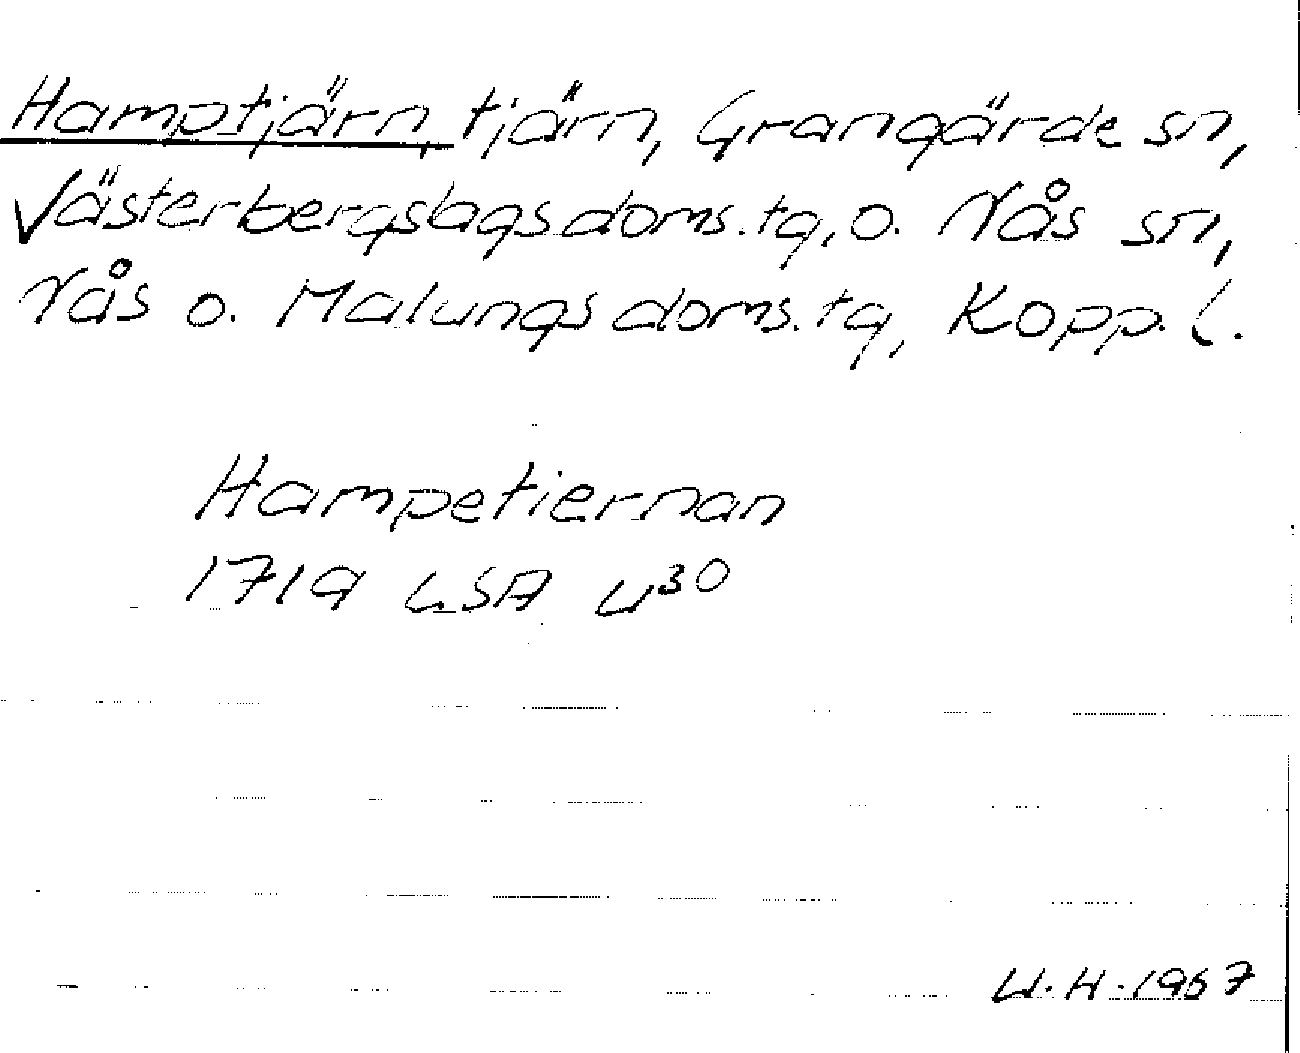 Hamptjärn, tjärn, Grangärde sn,
Västerbergslags doms.tg, o. Nås sn,
Nås o. Malungs doms.tg, Kopp. l.
Hampetiernan
1719 LSA U³⁰
U.H.1967